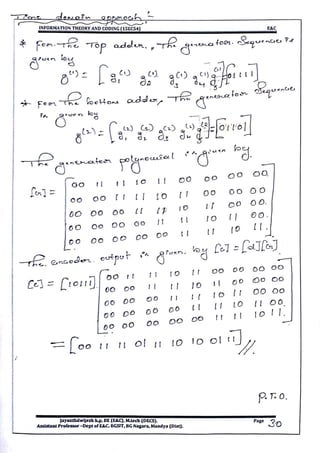 Time domain approach :-
INFORMATION THEORY AND CODING (15EC54) E&C
* For The Top adder, The generator Sequence is
given by
g(1) = [g(1) g(1) g(1) g(1) 01111]
* For The bottom adder, The generator Sequence
is given by
g(2) = [g(2) g(2) g(2) g(2) g(2)] = [01101]
The generator polynomial is given by
[G] = [00 11 11 10 11 00 00 00 00
00 00 11 11 10 11 00 00 00
00 00 00 11 11 10 11 00 00
00 00 00 00 11 11 10 11 00
00 00 00 00 00 11 11 10 11]
The Encoder output is given by [C] = [d][G]
[C] = [10111] [00 11 11 10 11 00 00 00 00
00 00 11 11 10 11 00 00 00
00 00 00 11 11 10 11 00 00
00 00 00 00 11 11 10 11 00
00 00 00 00 00 11 11 10 11]
= [00 11 11 01 11 10 10 01 11]//
P.T.O.
Jayanthdwijesh h.p. BE (E&C), M.tech (DECS). Page 30
Assistant Professor –Dept of E&C. BGSIT, BG Nagara, Mandya (Dist).